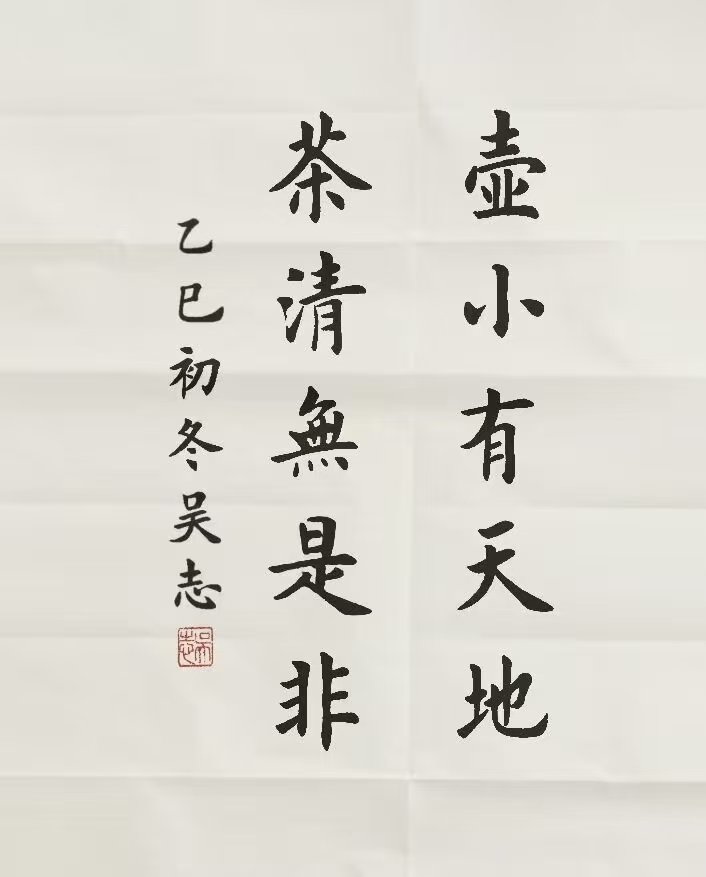 壺小有天地
茶清無是非
乙巳初冬吴志
吴志